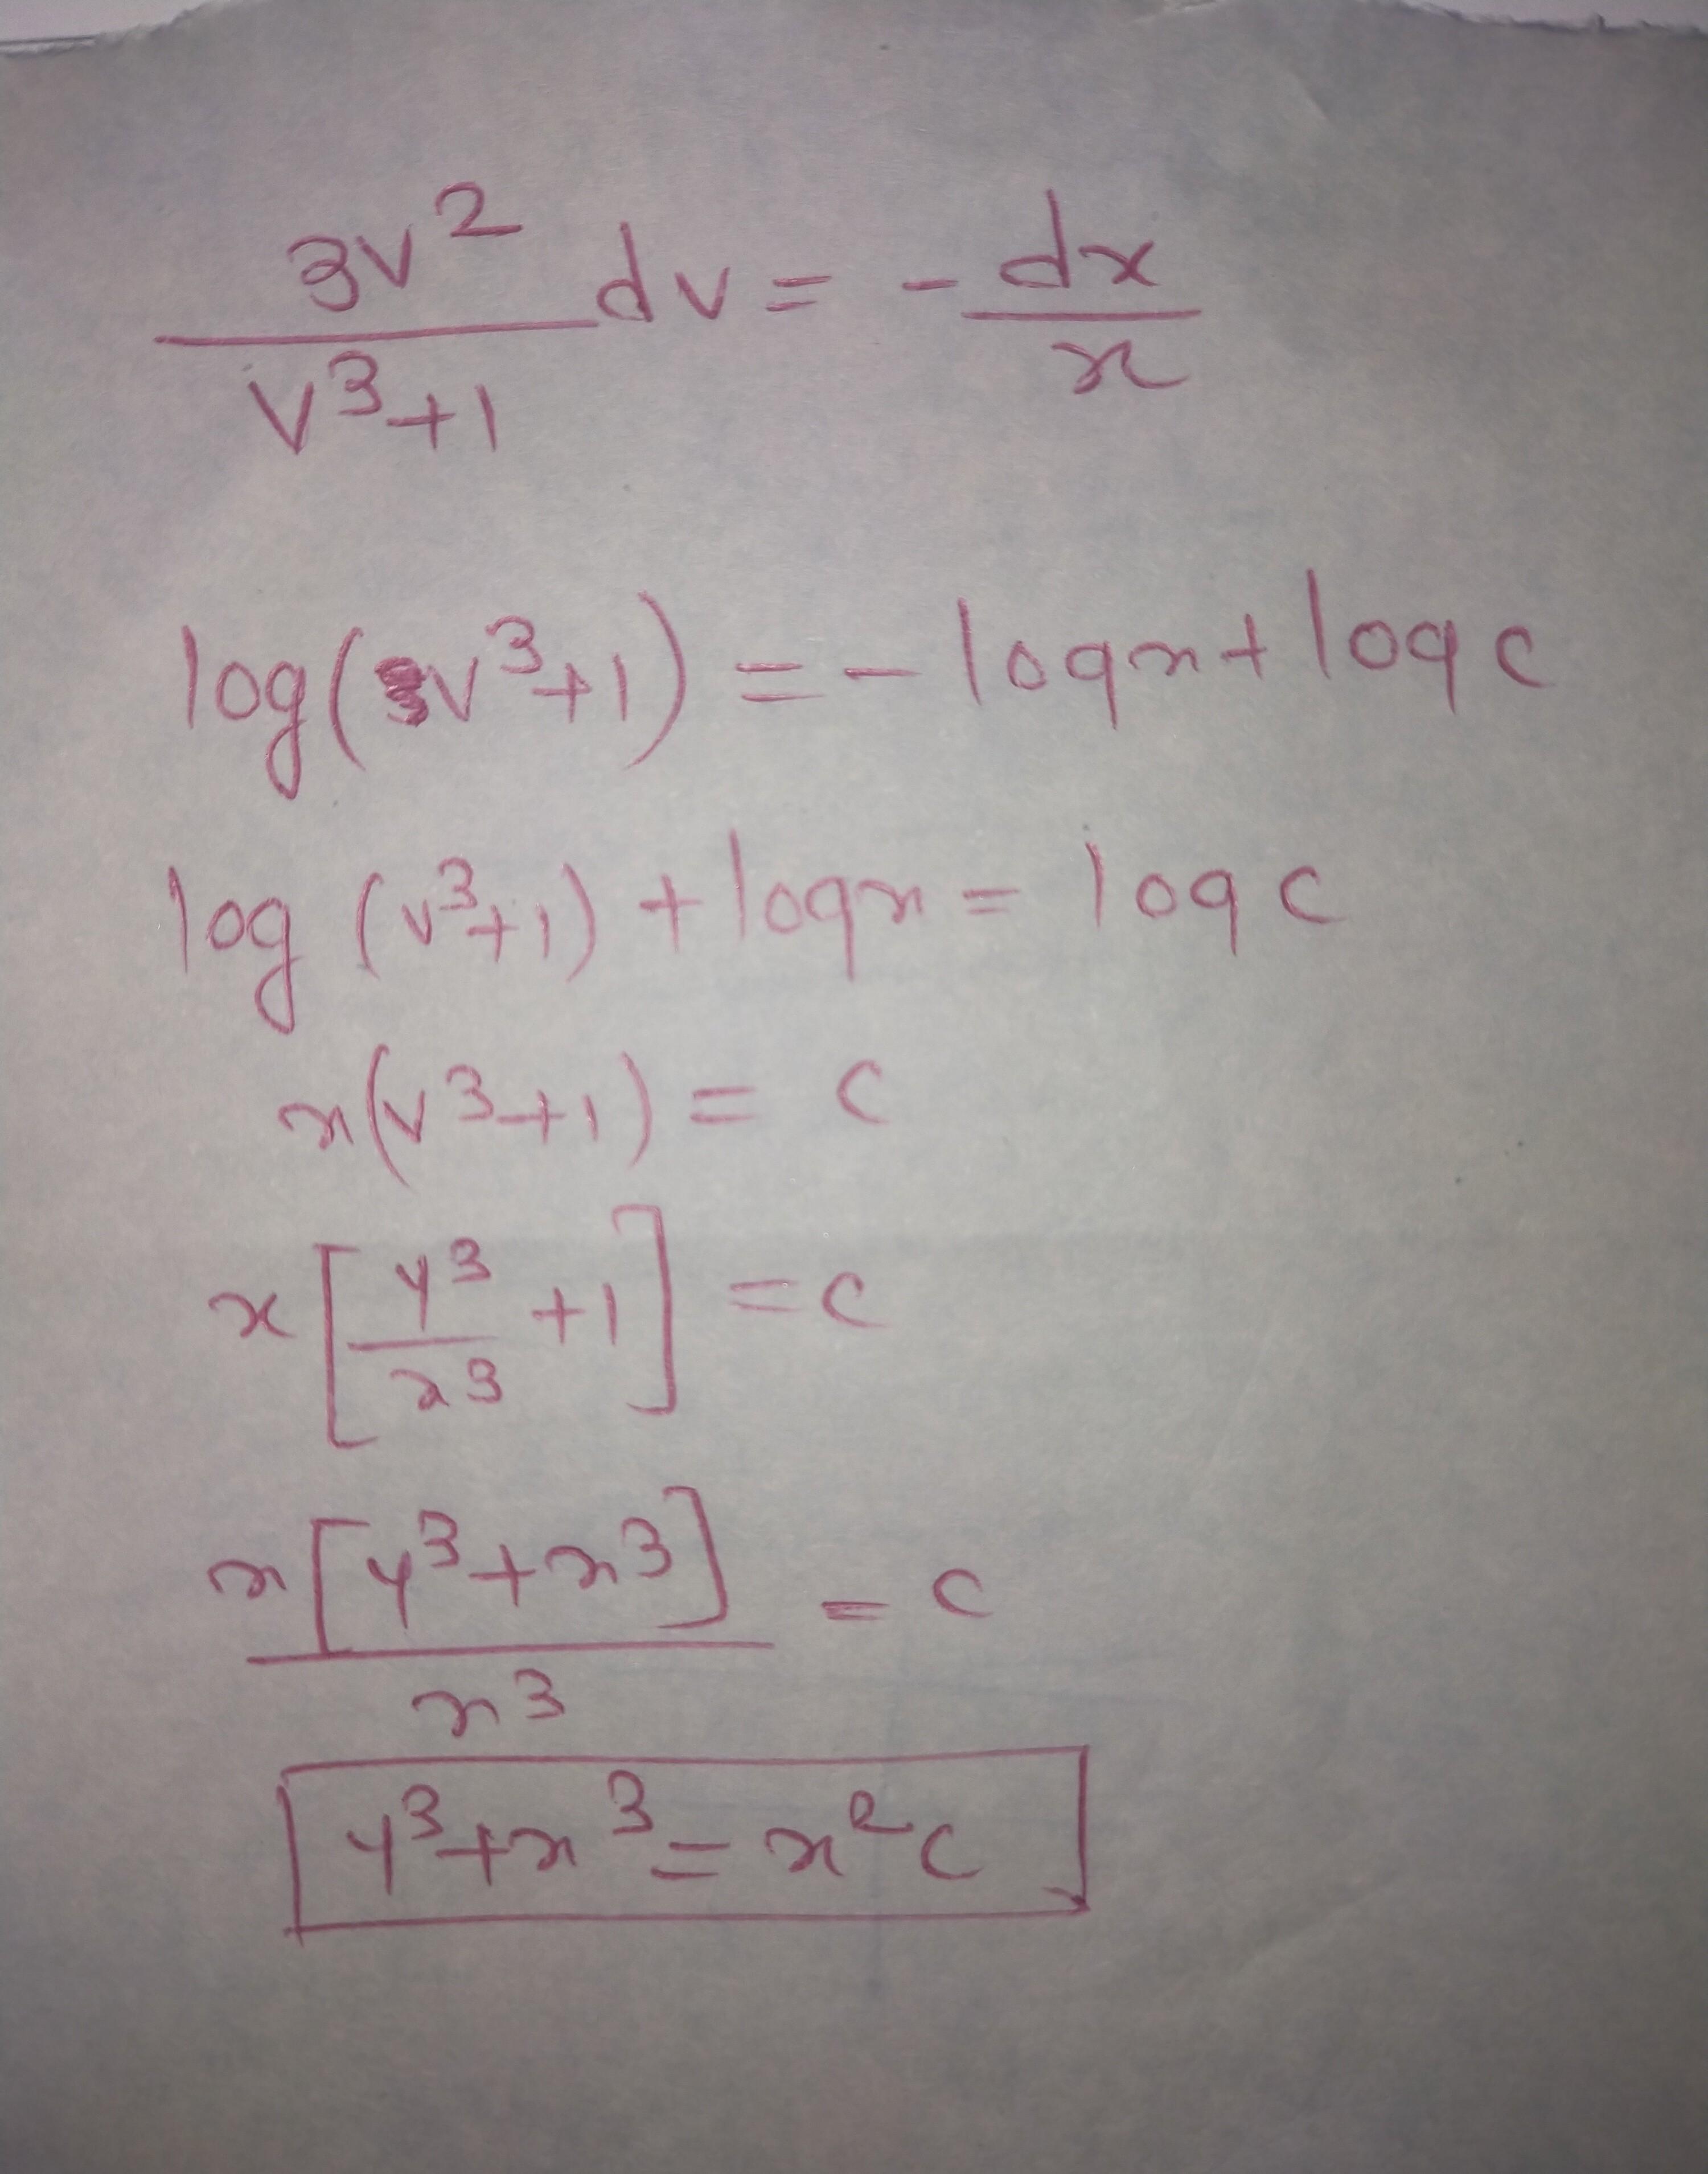 3v²/(v³+1) dv = - dx/x
log(v³+1) = - log x + log c
log (v³+1) + log x = log c
x(v³+1) = c
x[y³/x³ +1] = c
x[y³+x³]/x³ = c
y³+x³ = x²c